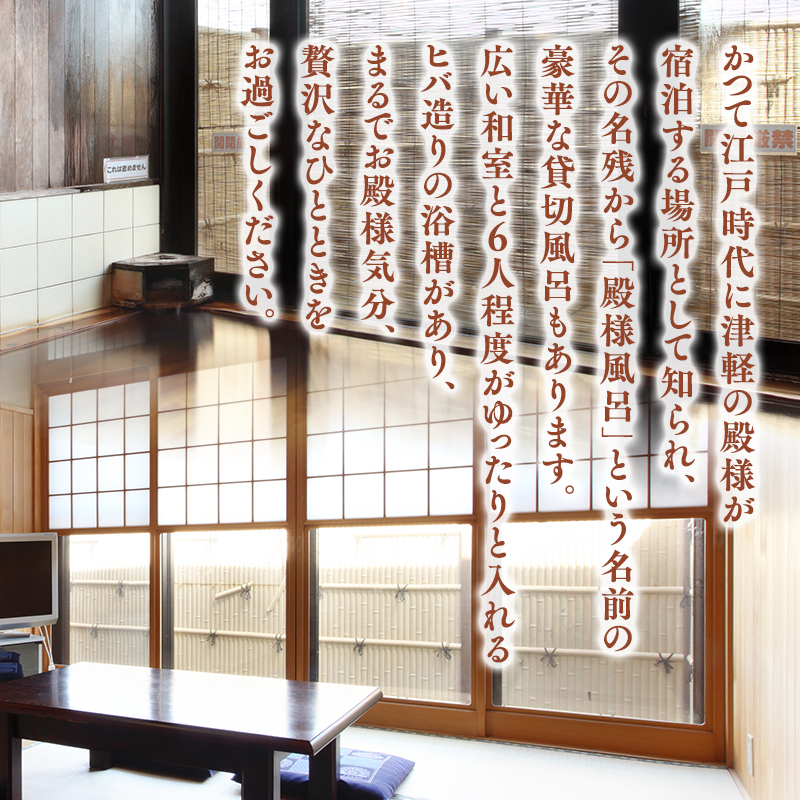 かつて江戸時代に津軽の殿様が
宿泊する場所として知られ、
その名残から「殿様風呂」という名前の
豪華な貸切風呂もあります。
広い和室と6人程度がゆったりと入れる
ヒバ造りの浴槽があり、
まるでお殿様気分、
贅沢なひとときを
お過ごしください。
これは飲めません